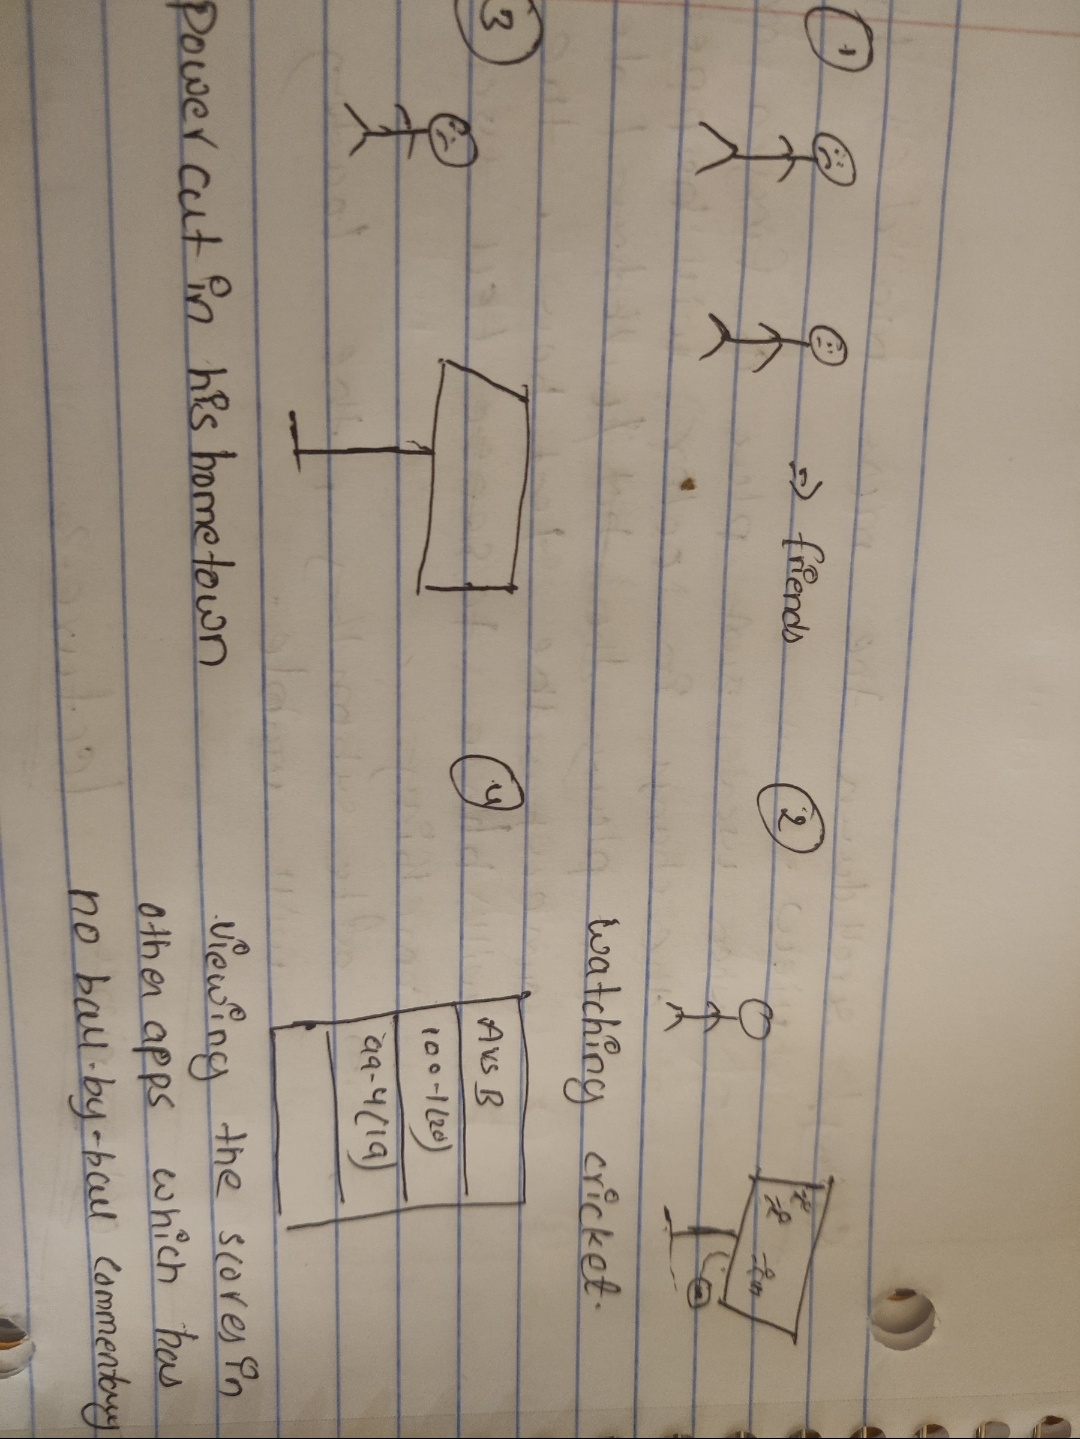 1
⇒ friends
2
watching cricket.
3
Power cut in his hometown
4
A vs B
100-1(20)
99-4(19)
viewing the scores in
other apps which has
no ball-by-ball commentary